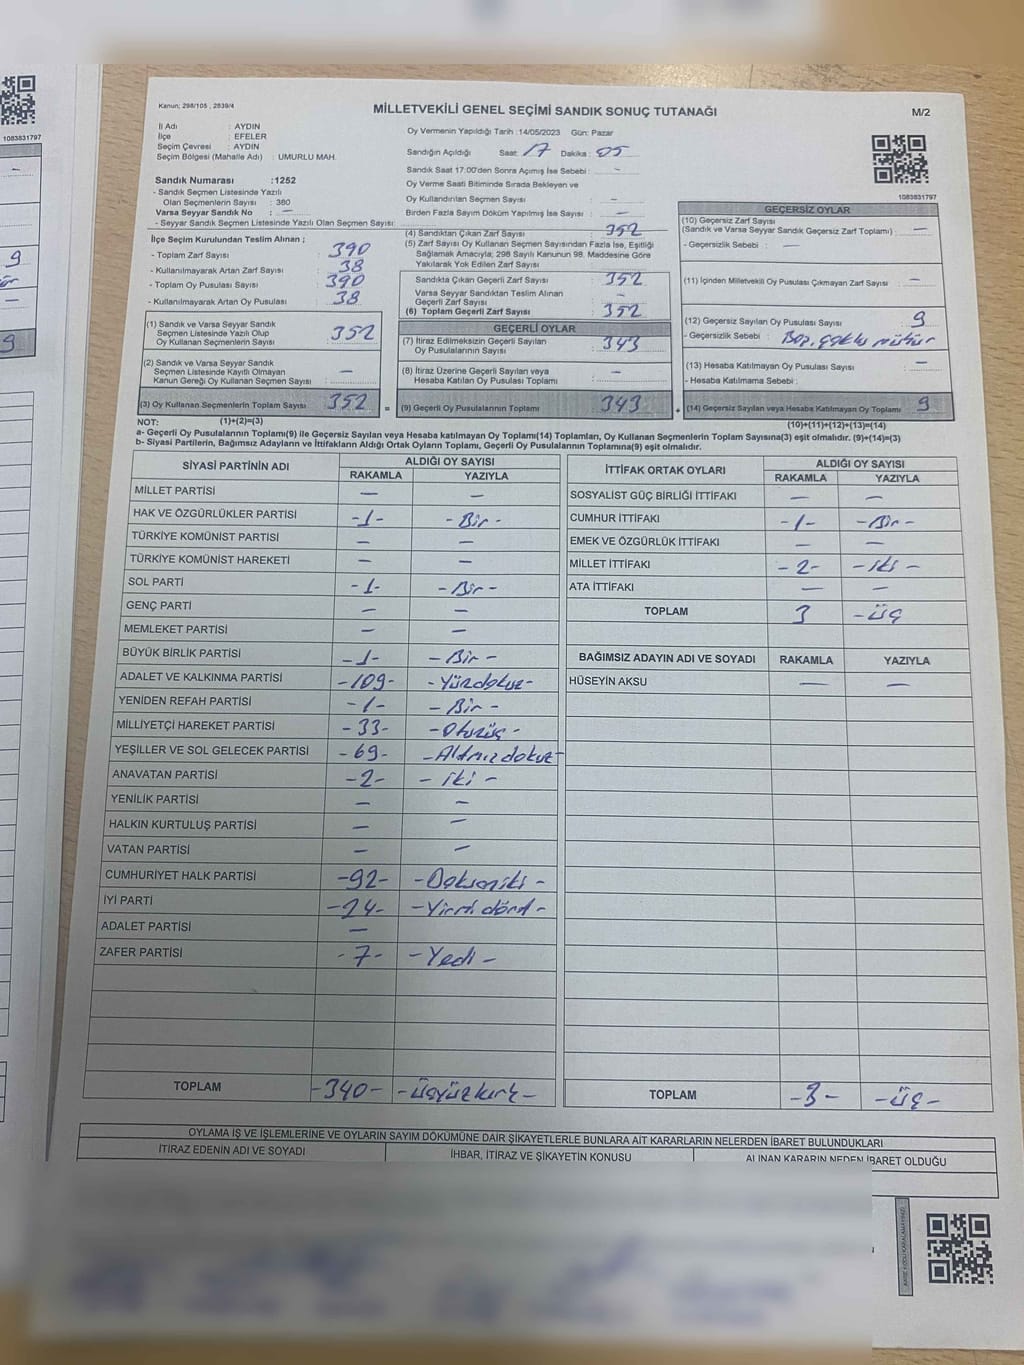 Kanun: 298/105 , 2839/4
MİLLETVEKİLİ GENEL SEÇİMİ SANDIK SONUÇ TUTANAĞI
M/2
1083831797
1083831797
İl Adı : AYDIN
İlçe : EFELER
Seçim Çevresi : AYDIN
Seçim Bölgesi (Mahalle Adı) : UMURLU MAH.
Sandık Numarası :1252
- Sandık Seçmen Listesinde Yazılı
Olan Seçmenlerin Sayısı : 380
Varsa Seyyar Sandık No : —
- Seyyar Sandık Seçmen Listesinde Yazılı Olan Seçmen Sayısı :
İlçe Seçim Kurulundan Teslim Alınan ;
- Toplam Zarf Sayısı : 390
- Kullanılmayarak Artan Zarf Sayısı : 38
- Toplam Oy Pusulası Sayısı : 390
- Kullanılmayarak Artan Oy Pusulası : 38
(1) Sandık ve Varsa Seyyar Sandık
Seçmen Listesinde Yazılı Olup
Oy Kullanan Seçmenlerin Sayısı : 352
(2) Sandık ve Varsa Seyyar Sandık
Seçmen Listesinde Kayıtlı Olmayan
Kanun Gereği Oy Kullanan Seçmen Sayısı : —
(3) Oy Kullanan Seçmenlerin Toplam Sayısı 352
(1)+(2)=(3)
Oy Vermenin Yapıldığı Tarih :14/05/2023 Gün: Pazar
Sandığın Açıldığı Saat: 17 Dakika : 05
Sandık Saat 17:00'den Sonra Açımış İse Sebebi : —
Oy Verme Saati Bitiminde Sırada Bekleyen ve
Oy Kullandırılan Seçmen Sayısı : —
Birden Fazla Sayım Döküm Yapılmış İse Sayısı : —
(4) Sandıktan Çıkan Zarf Sayısı : 352
(5) Zarf Sayısı Oy Kullanan Seçmen Sayısından Fazla İse, Eşitliği
Sağlamak Amacıyla; 298 Sayılı Kanunun 98. Maddesine Göre
Yakılarak Yok Edilen Zarf Sayısı :
Sandıkta Çıkan Geçerli Zarf Sayısı : 352
Varsa Seyyar Sandıktan Teslim Alınan
Geçerli Zarf Sayısı : —
(6) Toplam Geçerli Zarf Sayısı : 352
GEÇERLİ OYLAR
(7) İtiraz Edilmeksizin Geçerli Sayılan
Oy Pusulalarının Sayısı : 343
(8) İtiraz Üzerine Geçerli Sayılan veya
Hesaba Katılan Oy Pusulası Toplamı : —
= (9) Geçerli Oy Pusulalarının Toplamı 343
GEÇERSİZ OYLAR
(10) Geçersiz Zarf Sayısı
(Sandık ve Varsa Seyyar Sandık Geçersiz Zarf Toplamı) : —
- Geçersizlik Sebebi : —
(11) İçinden Milletvekili Oy Pusulası Çıkmayan Zarf Sayısı : —
(12) Geçersiz Sayılan Oy Pusulası Sayısı : 9
- Geçersizlik Sebebi : Boş, çoklu mühür
(13) Hesaba Katılmayan Oy Pusulası Sayısı : —
- Hesaba Katılmama Sebebi :
+ (14) Geçersiz Sayılan veya Hesaba Katılmayan Oy Toplamı 9
(10)+(11)+(12)+(13)=(14)
NOT:
a- Geçerli Oy Pusulalarının Toplamı(9) ile Geçersiz Sayılan veya Hesaba katılmayan Oy Toplamı(14) Toplamları, Oy Kullanan Seçmenlerin Toplam Sayısına(3) eşit olmalıdır. (9)+(14)=(3)
b- Siyasi Partilerin, Bağımsız Adayların ve İttifakların Aldığı Ortak Oyların Toplamı, Geçerli Oy Pusulalarının Toplamına(9) eşit olmalıdır.
SİYASİ PARTİNİN ADI ALDIĞI OY SAYISI
RAKAMLA YAZIYLA
MİLLET PARTİSİ — —
HAK VE ÖZGÜRLÜKLER PARTİSİ -1- -Bir-
TÜRKİYE KOMÜNİST PARTİSİ — —
TÜRKİYE KOMÜNİST HAREKETİ — —
SOL PARTİ -1- -Bir-
GENÇ PARTİ — —
MEMLEKET PARTİSİ — —
BÜYÜK BİRLİK PARTİSİ -1- -Bir-
ADALET VE KALKINMA PARTİSİ -109- -Yüzdokuz-
YENİDEN REFAH PARTİSİ -1- -Bir-
MİLLİYETÇİ HAREKET PARTİSİ -33- -Otuzüç-
YEŞİLLER VE SOL GELECEK PARTİSİ -69- -Altmızdokuz-
ANAVATAN PARTİSİ -2- -iki-
YENİLİK PARTİSİ — —
HALKIN KURTULUŞ PARTİSİ — —
VATAN PARTİSİ — —
CUMHURİYET HALK PARTİSİ -92- -Doksaniki-
İYİ PARTİ -24- -Yirmidört-
ADALET PARTİSİ —
ZAFER PARTİSİ -7- -Yedi-
TOPLAM -340- -üçyüzkırk-
İTTİFAK ORTAK OYLARI ALDIĞI OY SAYISI
RAKAMLA YAZIYLA
SOSYALİST GÜÇ BİRLİĞİ İTTİFAKI — —
CUMHUR İTTİFAKI -1- -Bir-
EMEK VE ÖZGÜRLÜK İTTİFAKI — —
MİLLET İTTİFAKI -2- -iki-
ATA İTTİFAKI — —
TOPLAM 3 -üç
BAĞIMSIZ ADAYIN ADI VE SOYADI RAKAMLA YAZIYLA
HÜSEYİN AKSU — —
TOPLAM -3- -üç-
OYLAMA İŞ VE İŞLEMLERİNE VE OYLARIN SAYIM DÖKÜMÜNE DAİR ŞİKAYETLERLE BUNLARA AİT KARARLARIN NELERDEN İBARET BULUNDUKLARI
İTİRAZ EDENİN ADI VE SOYADI İHBAR, İTİRAZ VE ŞİKAYETİN KONUSU ALINAN KARARIN NEDEN İBARET OLDUĞU